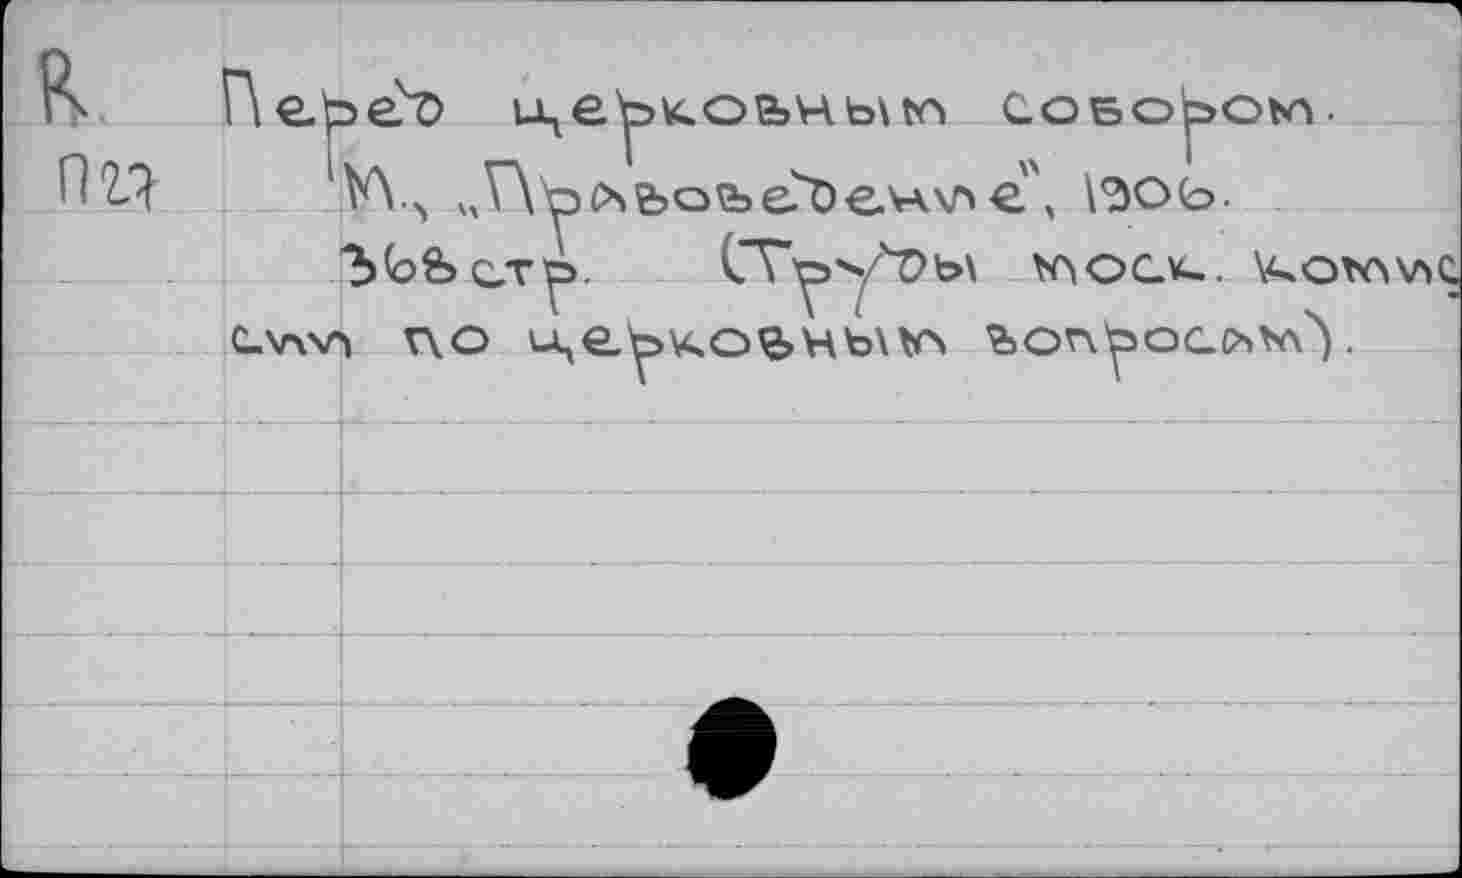 R Перед церковным собором.
П27 М., „Правоведение", 1906.
368 стр. (Труды моск. комис
сии по церковным вопросам).